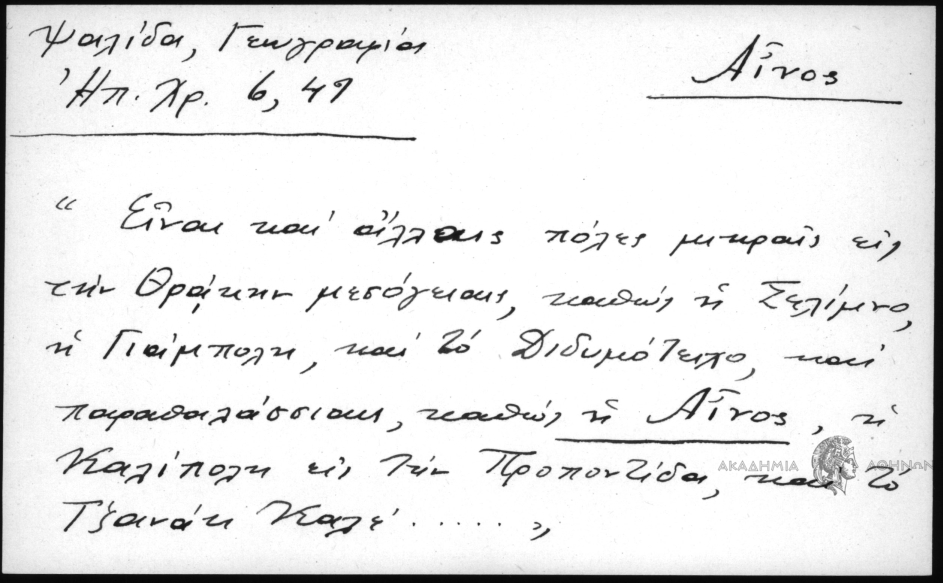 Ψαλίδα, Γεωγραφία
Ἠπ. Χρ. 6, 49
Αἶνος
“ Εἶναι καί ἄλλαις πόλες μικραῖς εἰς
τήν Θράκην μεσόγειαις, καθώς ἡ Σελίμνο,
ἡ Γιάμπολη, καί τό Διδυμότειχο, καί
παραθαλάσσιαις, καθώς ἡ Αἶνος, ἡ
Καλίπολη εἰς τήν Προποντίδα, καί τό
Τζανάκ Καλέ ..... „
ΑΚΑΔΗΜΙΑ ΑΘΗΝΩΝ